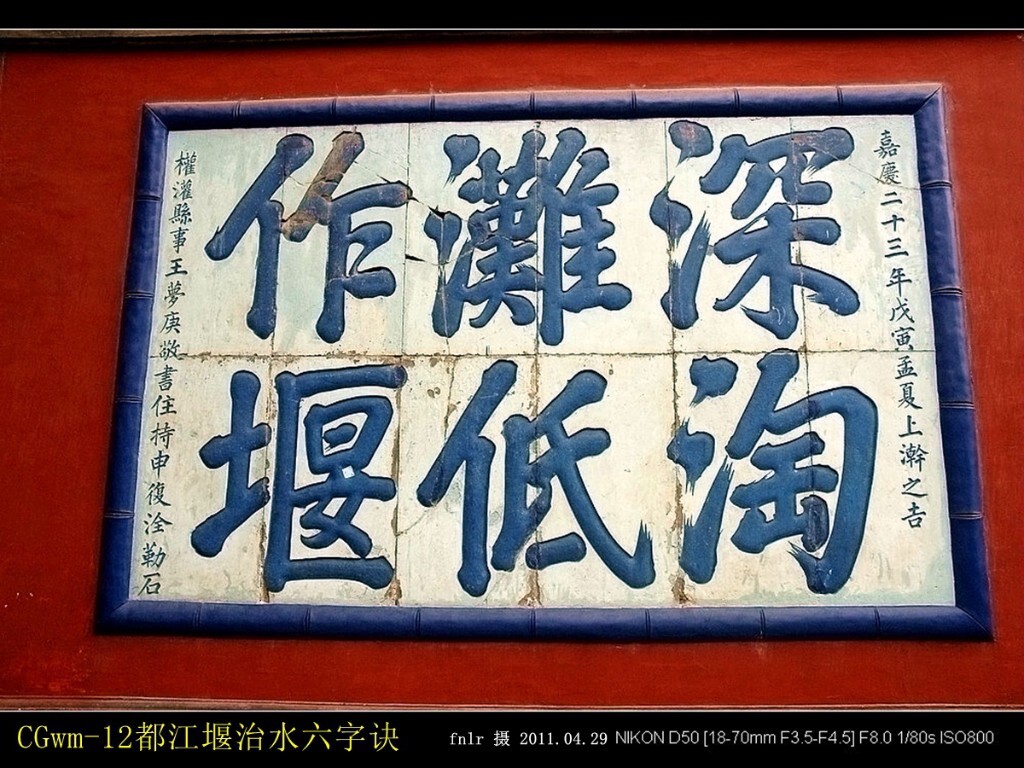 嘉慶二十三年戊寅孟夏上澣之吉
深淘
灘低
作堰
權灌縣事王夢庚敬書住持申復淦勒石
CGwm-12都江堰治水六字诀
fnlr 摄 2011.04.29 NIKON D50 [18-70mm F3.5-F4.5] F8.0 1/80s ISO800